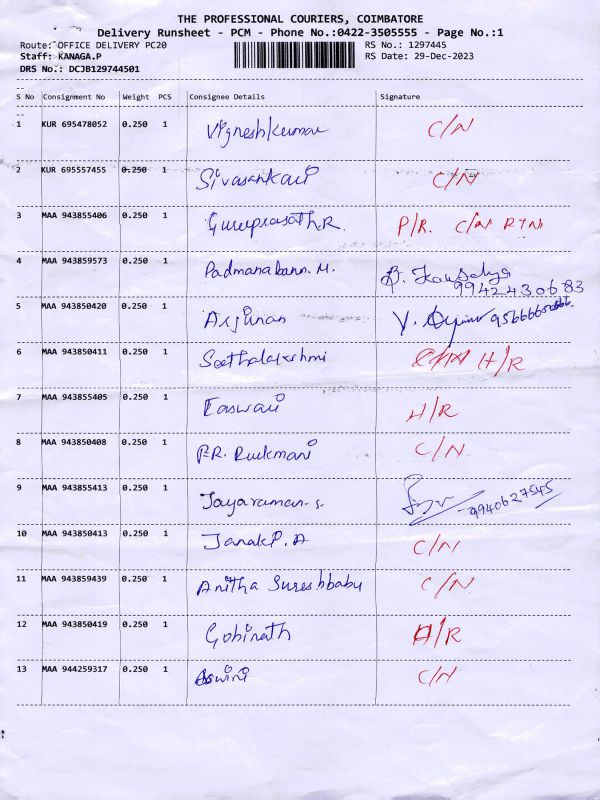 THE PROFESSIONAL COURIERS, COIMBATORE
Delivery Runsheet - PCM - Phone No.:0422-3505555 - Page No.:1
Route: OFFICE DELIVERY PC20 RS No.: 1297445
Staff: KANAGA.P RS Date: 29-Dec-2023
DRS No.: DCJB129744501
S No Consignment No Weight PCS Consignee Details Signature
1 KUR 695478052 0.250 1 Vigneshkumar C/N
2 KUR 695557455 0.250 1 Sivasankari C/N
3 MAA 943855406 0.250 1 Guruprasath.R. P/R. C/N RTN
4 MAA 943859573 0.250 1 Padmanabann. M.
9942430683
5 MAA 943850420 0.250 1 Arjunan V.
6 MAA 943850411 0.250 1 Seethalakshmi H/R
7 MAA 943855405 0.250 1 Easwari H/R
8 MAA 943850408 0.250 1 P.R. Rukmani C/N
9 MAA 943855413 0.250 1 Jayaraman. S. 9940627545
10 MAA 943850413 0.250 1 JanakP. A C/N
11 MAA 943859439 0.250 1 Anitha Sureshbabu C/N
12 MAA 943850419 0.250 1 Gobinath H/R
13 MAA 944259317 0.250 1 Aswini C/N